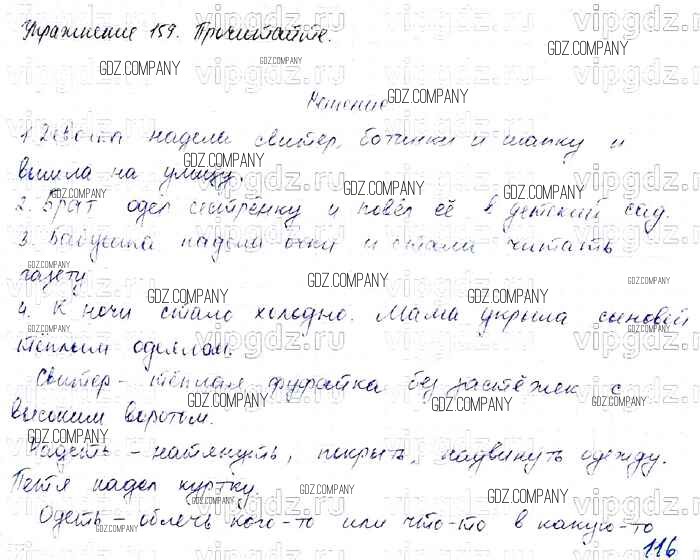 Упражнение 159. Прочитайте.
Решение
1. Девочка надела свитер, ботинки и шапку и
вышла на улицу.
2. Брат одел сестрёнку и повёл её в детский сад.
3. Бабушка надела очки и стала читать
газету
4. К ночи стало холодно. Мама укрыла сыновей
тёплым одеялом.
Свитер - тёплая фуфайка без застёжек с
высоким воротом.
Надеть - натянуть, покрыть, надвинуть одежду.
Петя надел куртку.
Одеть - облечь кого-то или что-то в какую-то
116